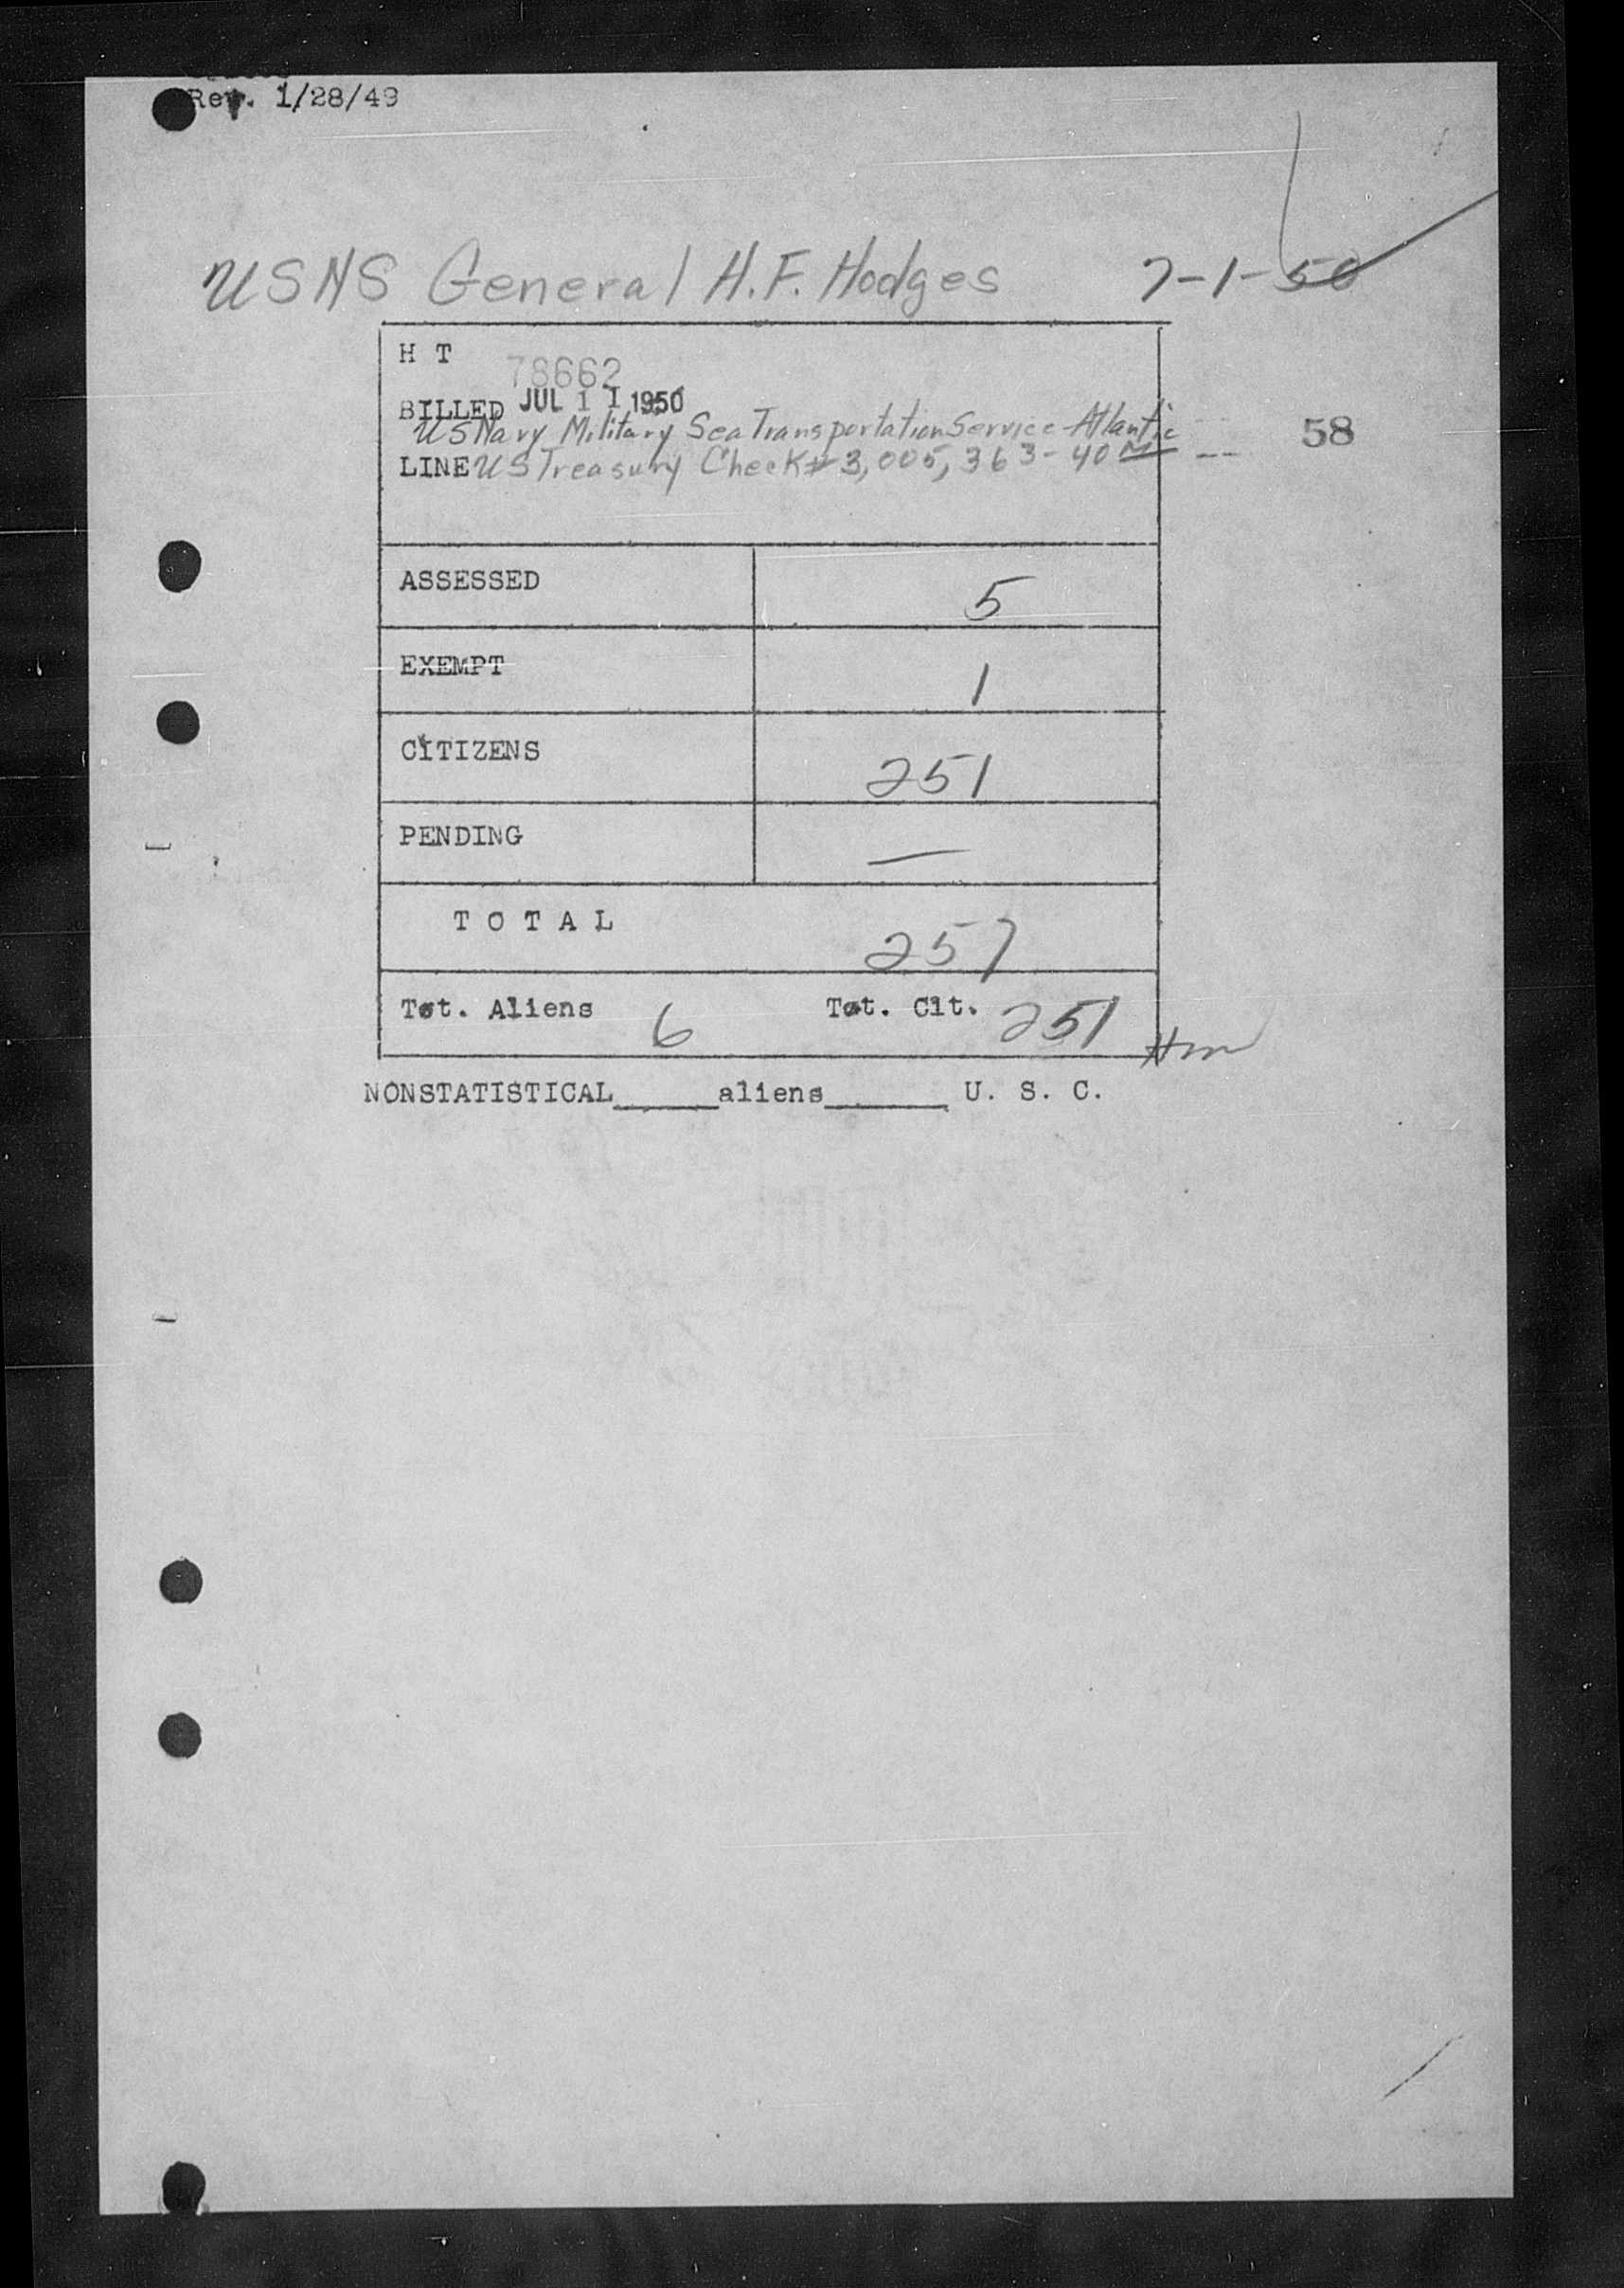 Rev. 1/28/49
USNS General H.F. Hodges 7-1-50
H T
78662
BILLED JUL 11 1950
US Navy Military Sea Transportation Service-Atlantic
LINE US Treasury Check # 3,005,363-40 58
ASSESSED 5
EXEMPT 1
CITIZENS 251
PENDING —
T O T A L 257
Tot. Aliens 6 Tot. Cit. 251
NONSTATISTICAL_____aliens______ U. S. C.